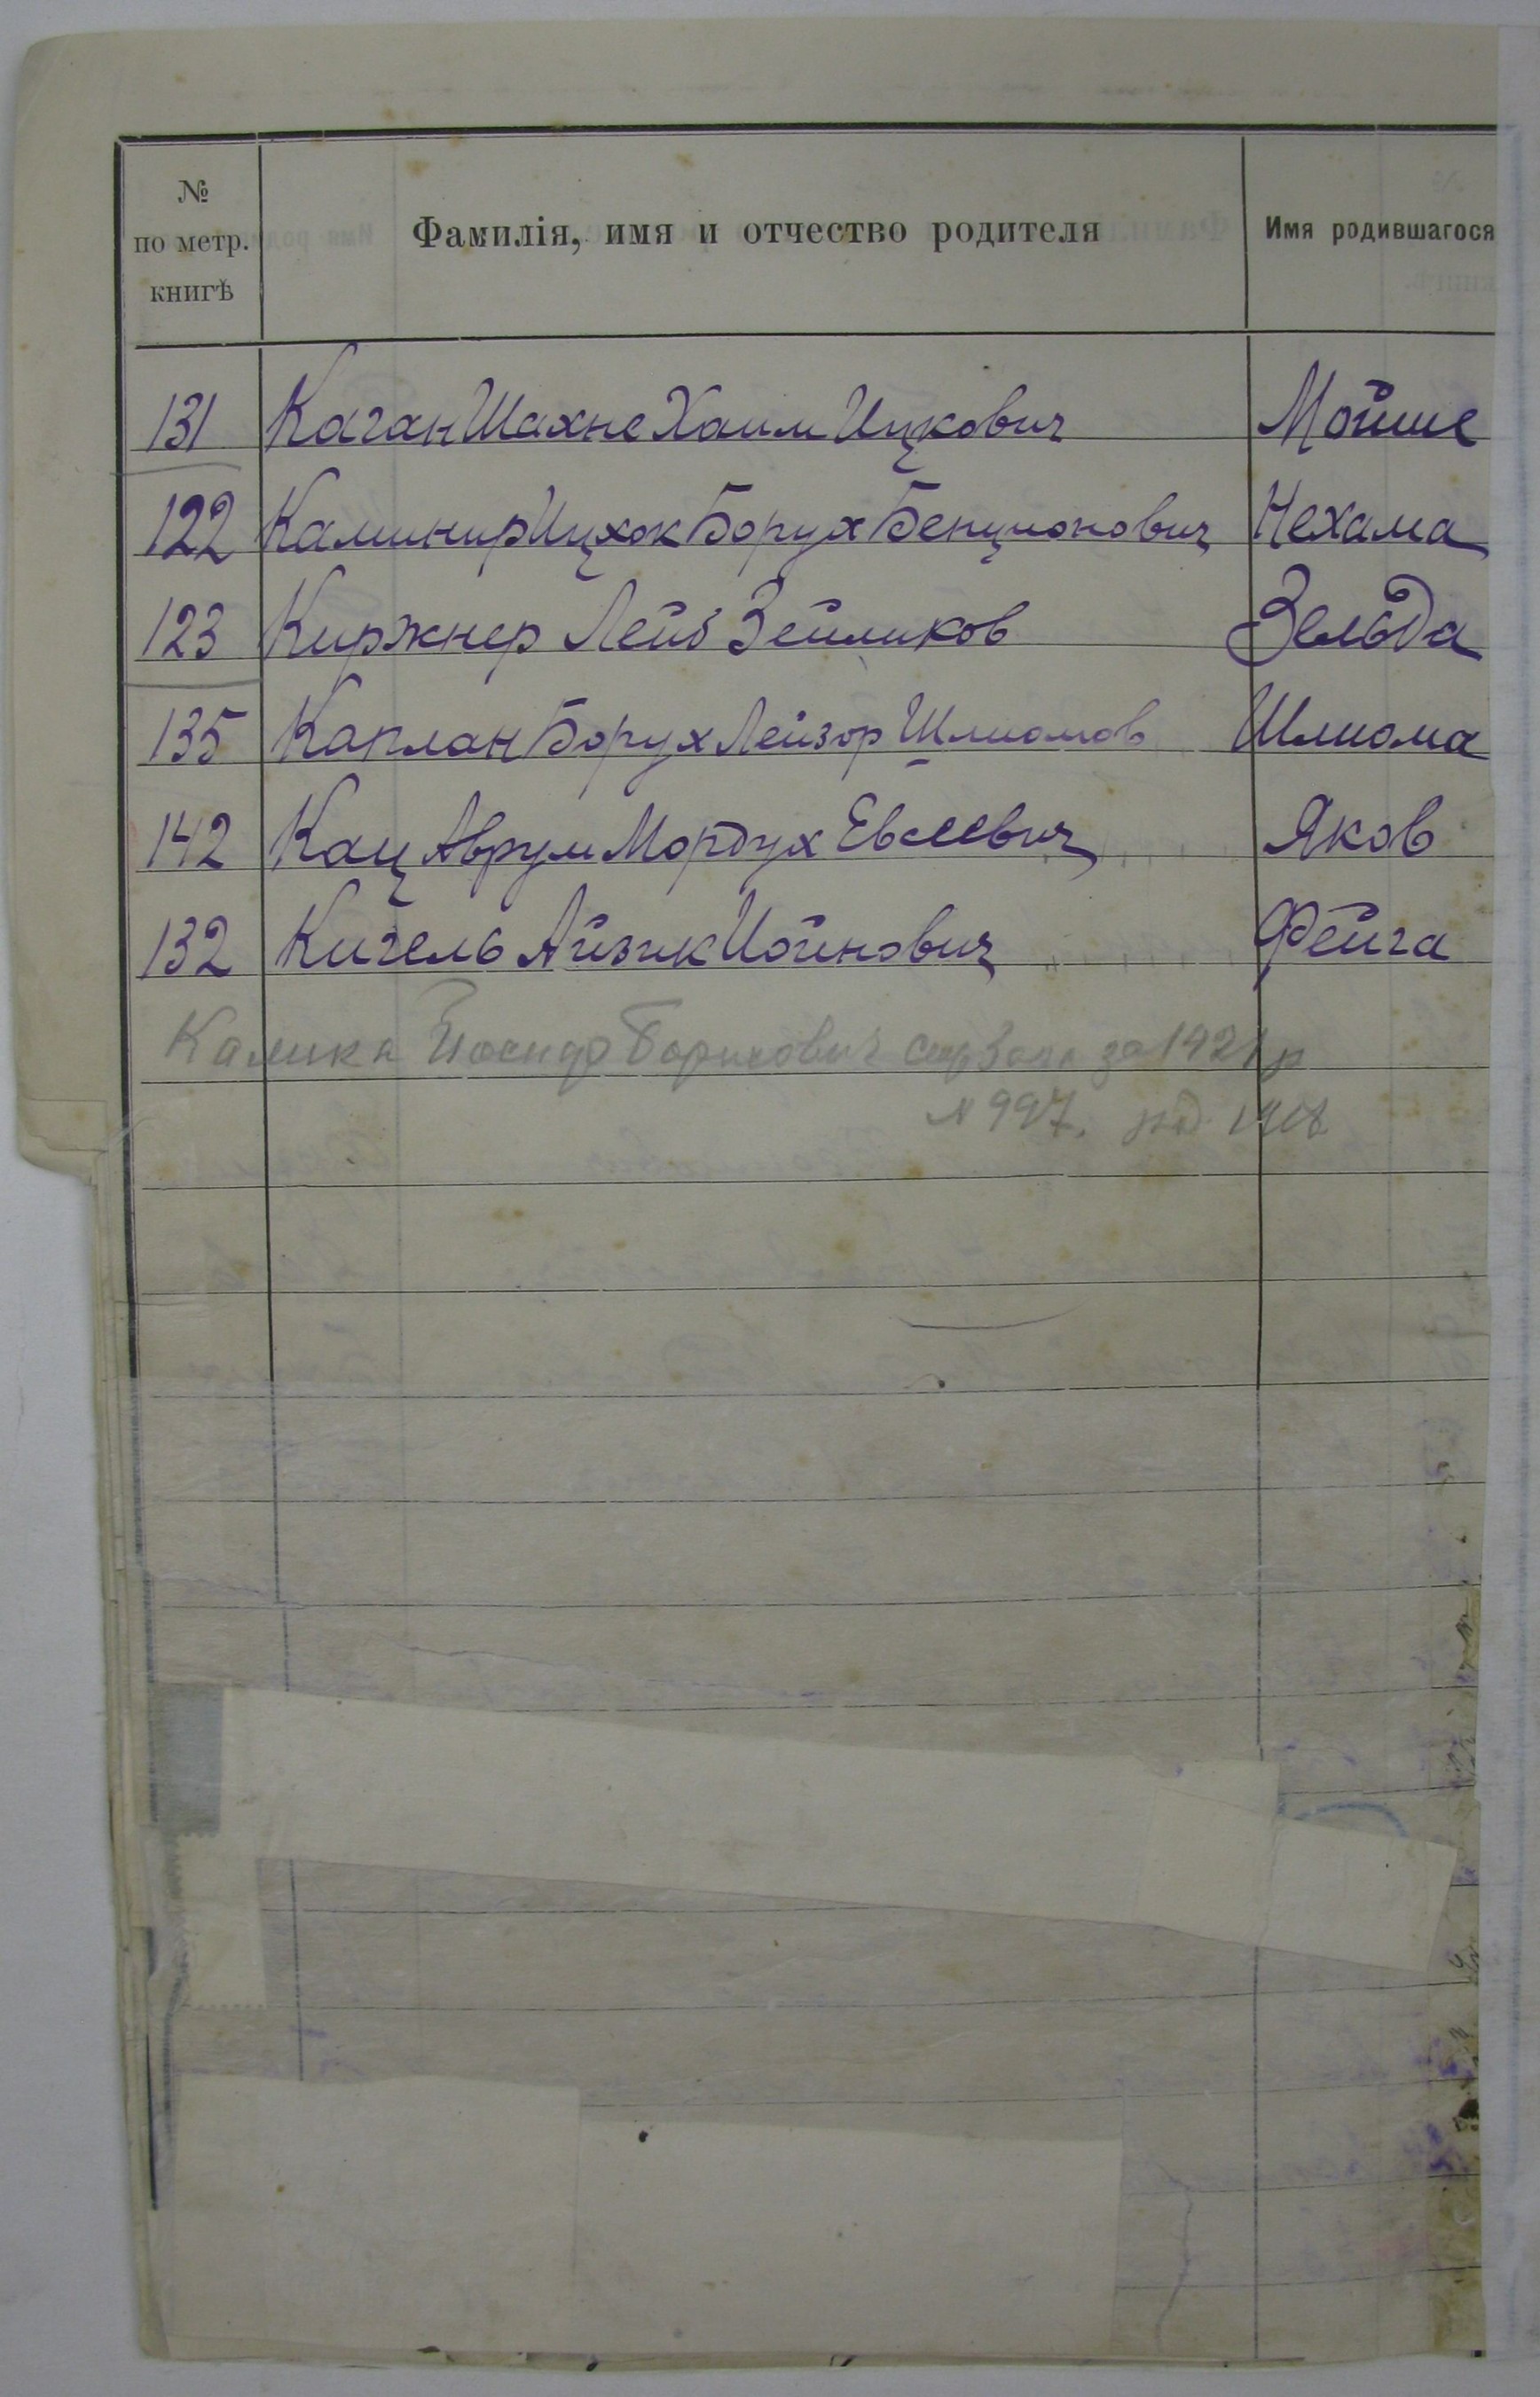 № по метр. книгѣ Фамилія, имя и отчество родителя Имя родившагося
131 Каган Шахне Хаим Ицкович Мойше
122 Каминир Ицхок Борух Бенционович Нехама
123 Киржнер Лейб Зейликов Зельда
135 Каплан Борух Лейзор Шлиомов Шлиома
142 Кац Аврум Мордух Евсеевич Яков
132 Кигель Айзик Иойнович Фейга
Калика Борихович за 1921 р
N 997. 1918